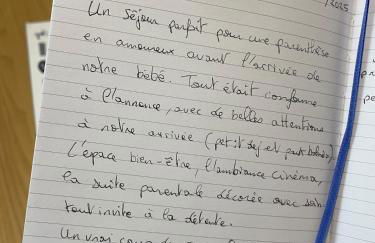 /2025
Un séjour parfait pour une parenthèse
en amoureux avant l'arrivée de
notre bébé. Tout était conforme
à l'annonce, avec de belles attentions
à notre arrivée (petit dej et
L'épace bien-être, l'ambiance cinéma,
la suite parentale décorée avec soin
tout invite à la détente.
Un vrai coup de